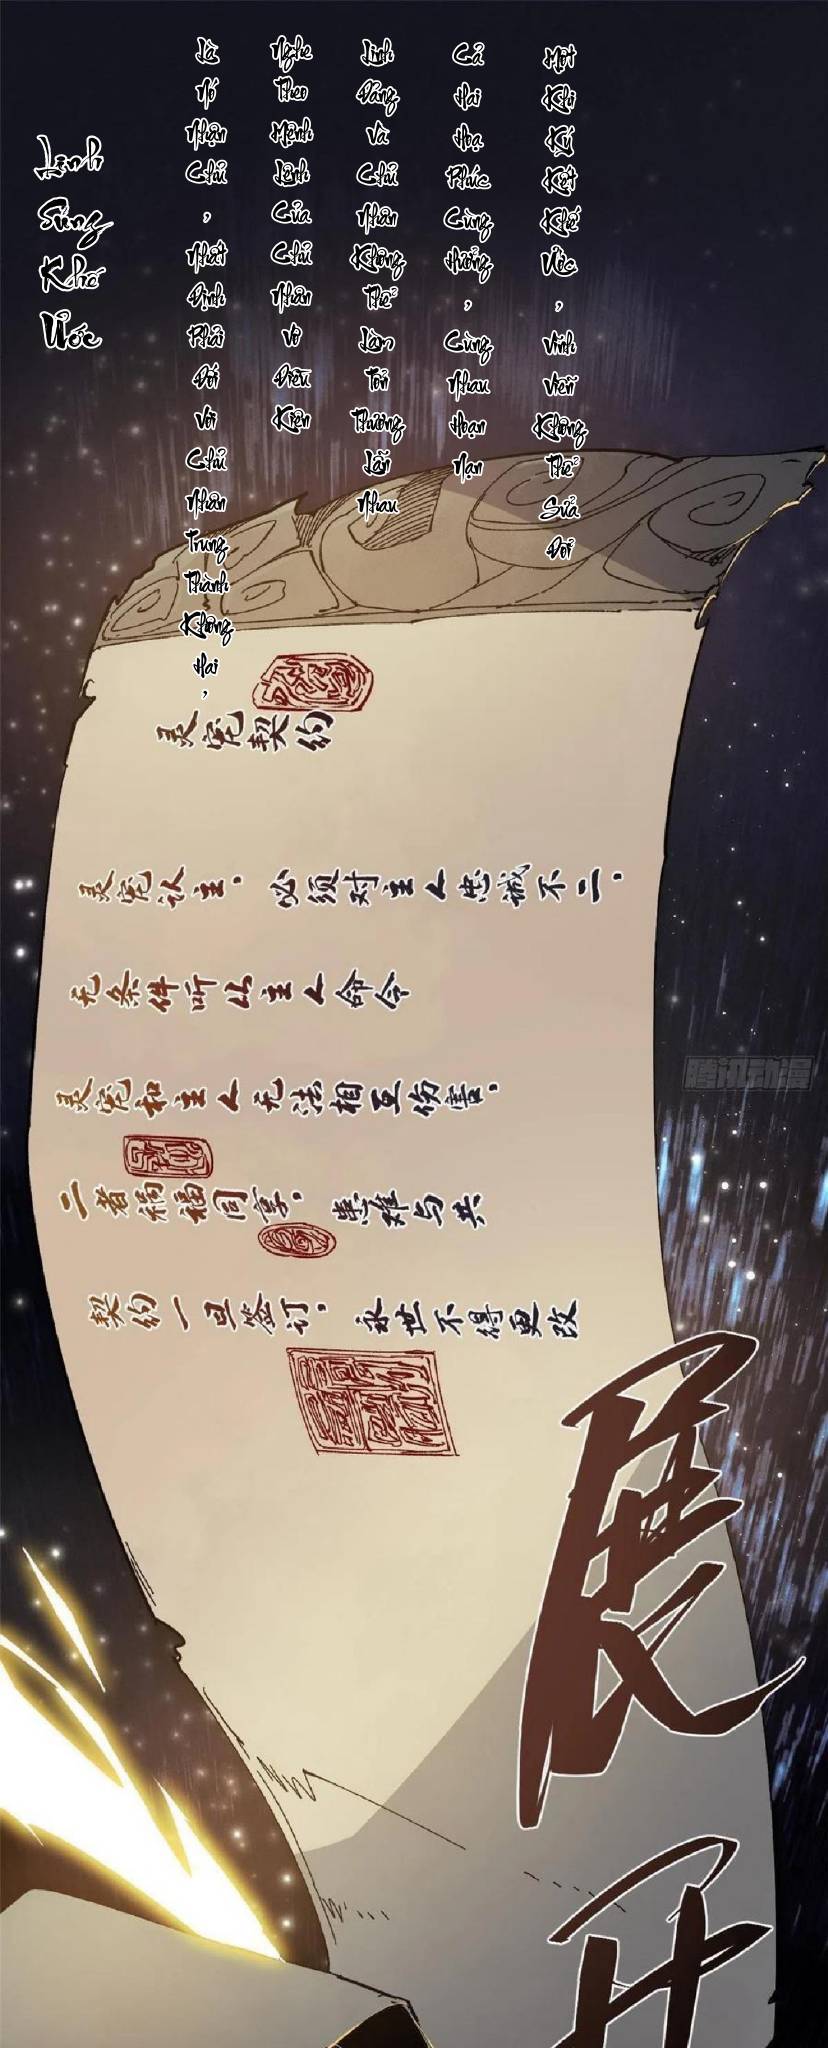 Linh Sủng Khế Ước
Là Nó Nhận Chủ, Nhất Định Phải Đối Với Chủ Nhân Trung Thành Không Hai,
Nghe Theo Mệnh Lệnh Của Chủ Nhân Vô Điều Kiện
Linh Đáng Và Chủ Nhân Không Thể Làm Tổn Thương Lẫn Nhau
Cả Hai Hoạ Phúc Cùng Hưởng, Cùng Nhau Hoạn Nạn
Một Khi Ký Kết Khế Ước, Vĩnh Viễn Không Thể Sửa Đổi
灵宠契约
灵宠认主，必须对主人忠诚不二，
无条件听从主人命令
灵宠和主人无法相互伤害，
二者祸福同享，患难与共
契约一旦签订，永世不得更改
腾讯动漫
展开